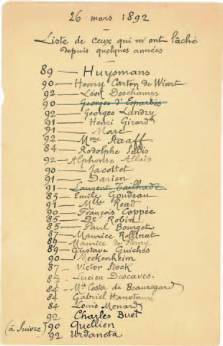 26 mars 1892
Liste de ceux qui m'ont lâché
depuis quelques années
89 — Huysmans
90 — Henry Carton de Wiart
92 — Léon Deschamps
90 — Georges d'Esparbès
92 — Georges Landry
91 — Henri Girard
91 —
92 — Mme
84 — Rodolphe Salis
92 — Alphonse Allais
90 — Jacottet
91 — Darien
91 — Laurent Tailhade
84 — Emile Goudeau
91 — Mlle Read
90 — François Coppée
85 — Dr Robin
85 — Paul Bourget
87 — Maurice Rollinat
86 — Maurice de Fleury
89 — Gustave Guiches
90 — Meckenheim
87 — Victor Stock
85 — Lucien Descaves
84 — Mis Costa de Beauregard
84 — Gabriel Hanotaux
84 — Louis Monard
92 — Charles Buet
(à suivre) 90 — Quellien
92 — Urdaneta